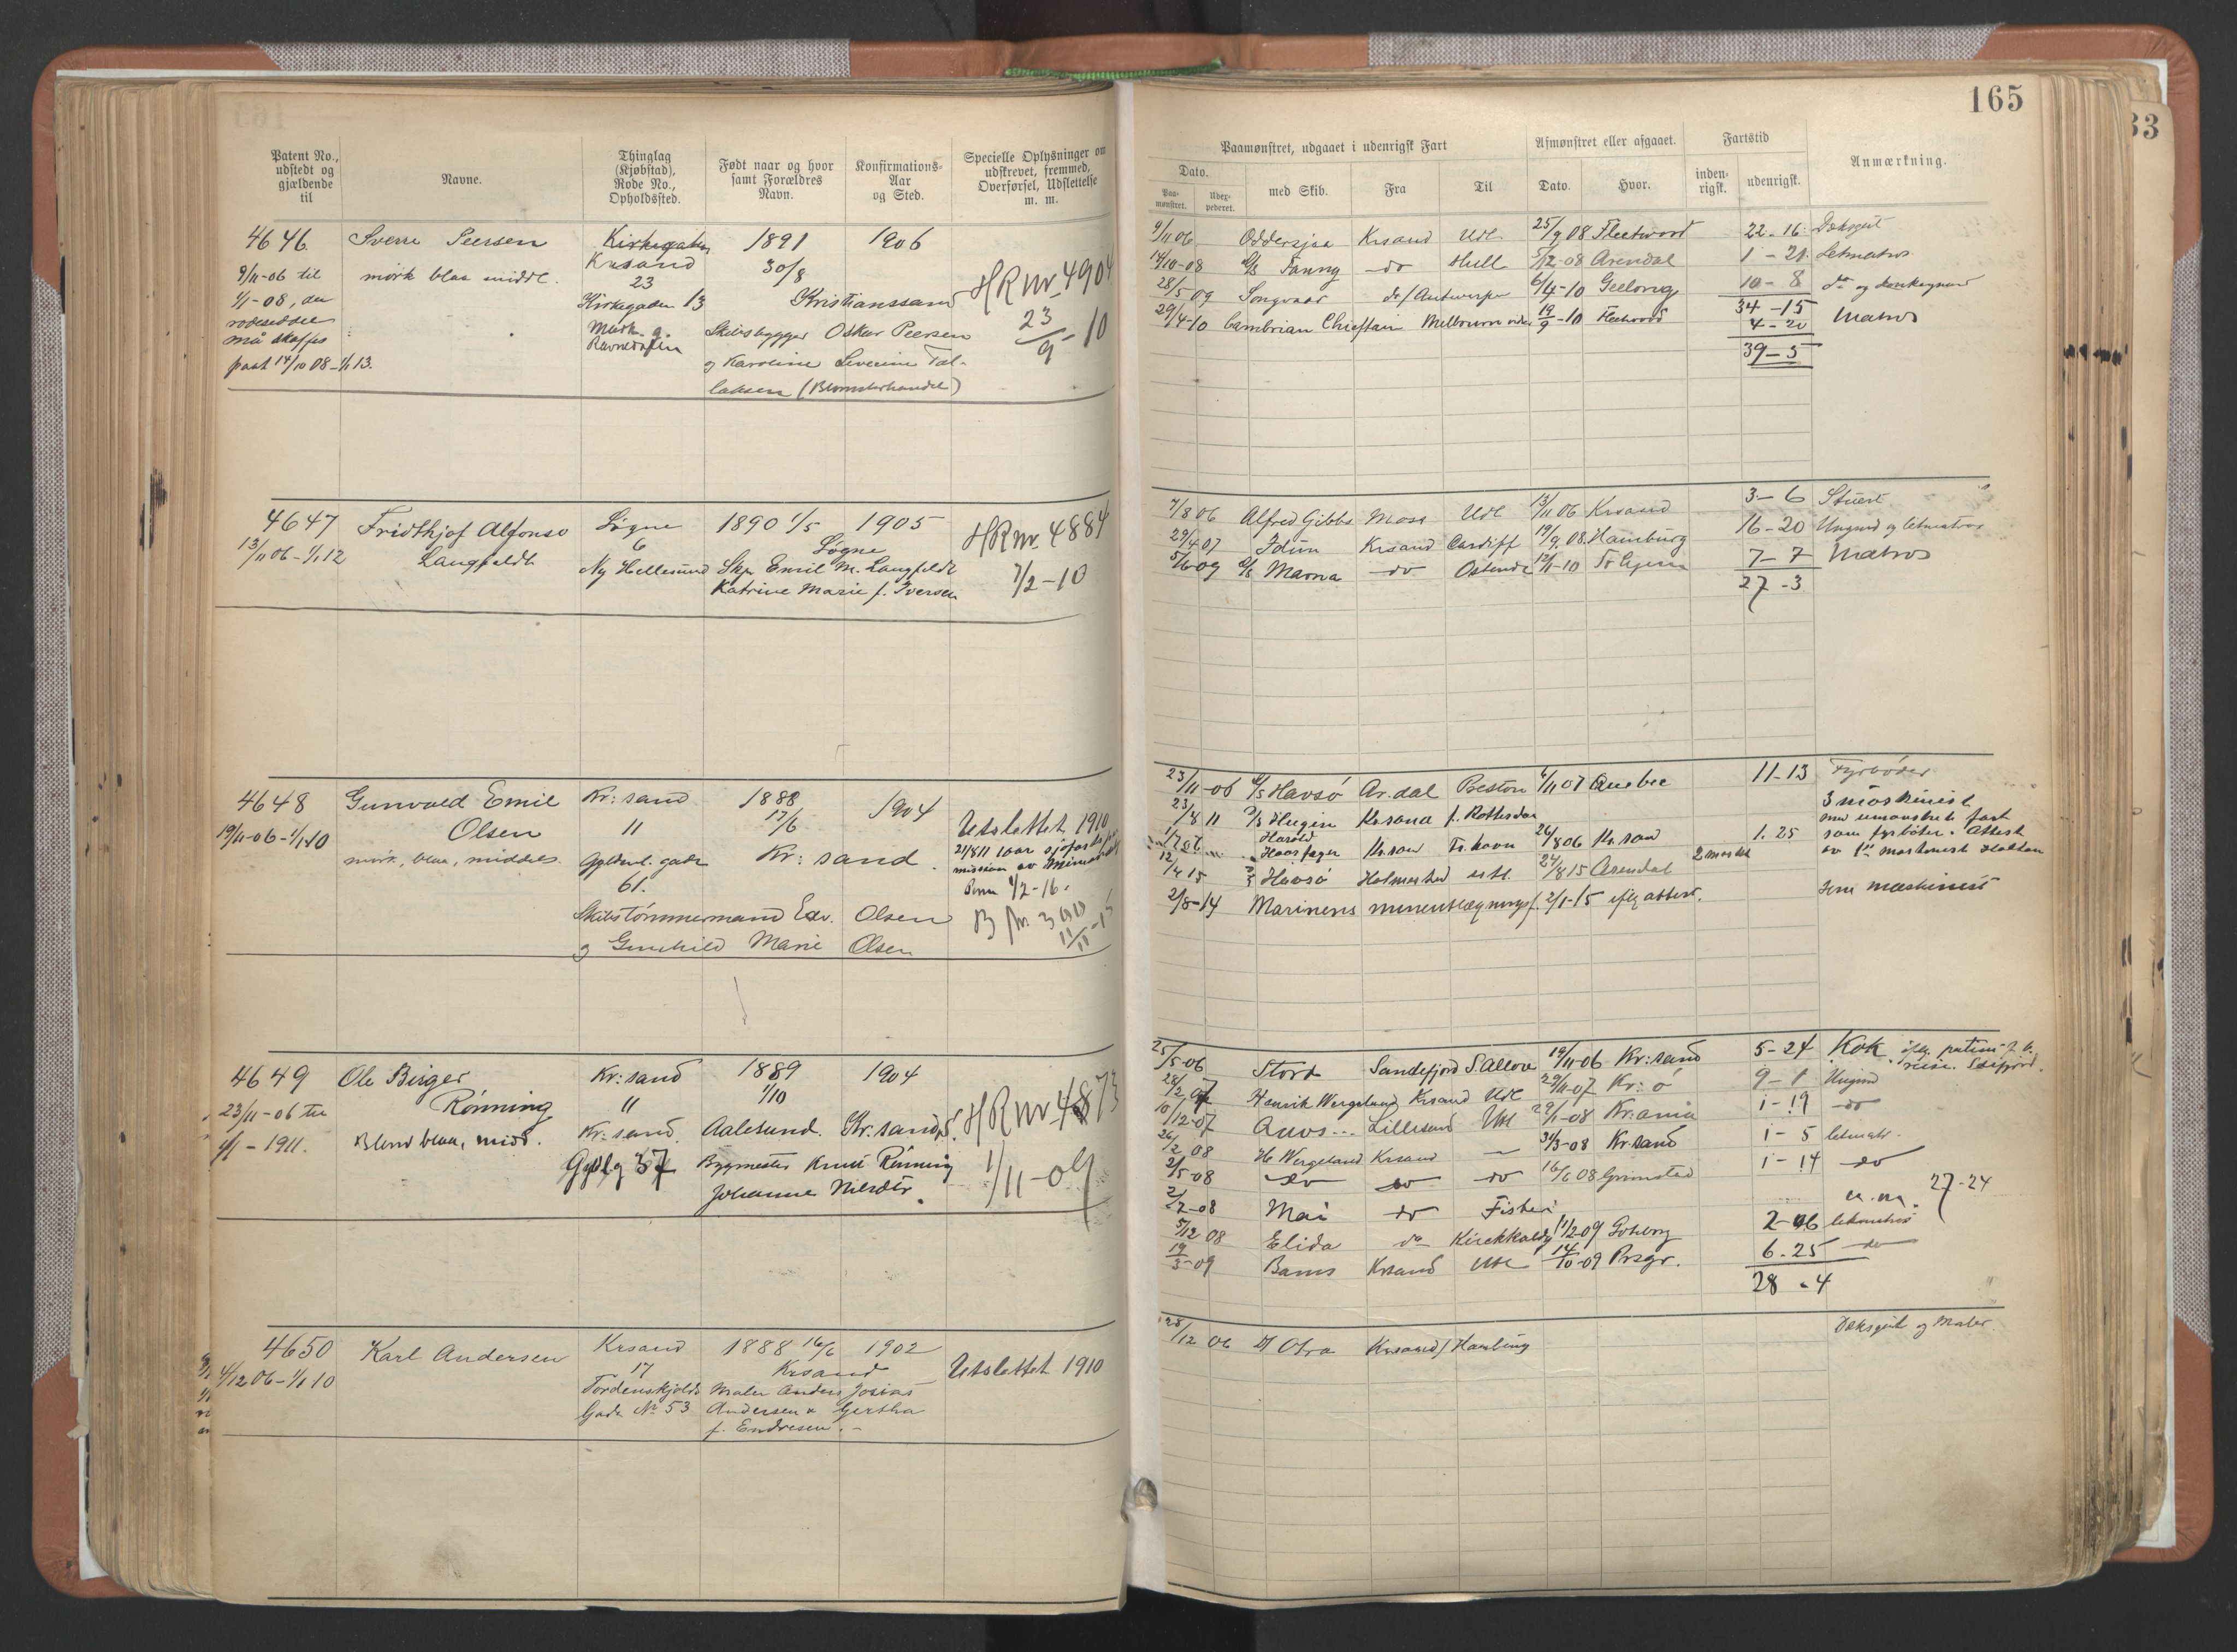 165
Patent No., udstedt og gjældende til
Navne.
Thinglag (Kjøbstad), Rode No., Opholdssted.
Født naar og hvor samt Forældres Navn.
Konfirmations-Aar og Sted.
Specielle Oplysninger om udskrevet, fremmed, Overførsel, Udslettelse m. m.
Paamønstret, udgaaet i udenrigsk Fart
Afmønstret eller afgaaet.
Fartstid
Anmærkning.
Dato.
med Skib.
Fra
Til
Dato.
Hvor.
inden-rigsk.
udenrigsk.
Paa-mønstret.
33
4646 Sverre Peersen Kirkegaten 1891 1906
9/11-06 til mørk blaa middl. Krsand 30/8
1/1-08, 23 HR nr. 4904
Kirkegaden 13 Kristianssand
rodeseddel Skibsbygger Oskar Peersen 23/9-10
må skaffes
14/10 08-1/1 13. og Karoline Severine Tal-
laksen (Blomsterhandel)
9/11 06 Oddersjaa Krsand Udl. 25/9 08 Fleetwood 22-16 Dæksgut
14/10-08 Fanny do Hull 5/12-08 Arendal 1-21 Letmatros
28/5 09 Songvaar do/Antwerpen 6/4-10 Geelong 10-8 do og
34-15
29/4-10 Cambrian Chieftain Melbourne 19/9-10 Fleetwood 4-20 Matros
39-5
4647 Fridthjof Alfonso Søgne 1890 1/5 1905 HR nr. 4884
13/11 06-1/1 12 Langfeldt 6 Søgne
Ny Hellesund Skpr Emil M. Langfeldt 7/2-10
Katrine Marie f. Iversen
7/8 06 Alfred Gibbs Moss Udl 13/11 06 Krsand 3-6 Stuert
29/4 07 Idun Krsand Cardiff 19/9 08 Hamburg 16-20 Ungmd og letmatros
5/6 09 Marna do Ostende 7-7 Matros
27-3
4648 Gunvald Emil Kr:sand 1888 1904
19/11-06-1/1-10 Olsen 11 17/6 Utslettet 1910
mørk, blaa, middels. Gyldenl. gade Kr:sand
61.
Skibstømmermand Edv. Olsen
og Gunhild Marie Olsen
23/11-06 Havsö Ar.dal Preston 6/11 07 Quebec 11-13 Fyrbøder
23/8 11 Hugin Krsand f. Rotterdam 3 maskinist
Harald
Haarfager Kr.san Fr.havn 26/8 06 Kr.san 1.25 som fyrbøter. Attest
12/4 15 Havsö Halmstad 24/8 15 Arendal
2/8-14 Marinens 2/1-15 iflg attest. maskinist
4649 Ole Birger Kr:sand 1889 1904
23/11-06 til Rønning 11 1/10 HR nr 4873
1/1-1911. Blond blaa, midd. Kr:sand Aalesund. Kr.sand
Gyldlg 37 Bygmester Knut Rønning 1/11-09
Johanne Nilsdtr.
25/5-06 Stord Sandefjord 19/11-06 Kr:sand 5-24 Kok
28/2 07 Henrik Wergeland Krsand Udl 29/11-07 Kr:ø 9-1 Ungmd
10/12-07 Lillesand Udl 29/1-08 Kr.ania 1-19 do
26/2 08 H Wergeland Krsand 31/3-08 Kr.sand 1-5 letmatr.
2/5-08 do do do 16/6 08 Grimstad 1-14 do
27-24
2/7-08 Mai do Fiskeri
5/12 08 Elida do Kirkkaldy 11/2-09 Goteborg 2-06 letmatros
19/3-09 Krsand Udl 14/10-09 Prsgr. 6.25 do
28-4
4650 Karl Andersen Krsand 1888 16/6 1902
4/12 06-1/1 10 17 Krsand Utslettet 1910
Tordenskjolds Maler Anders Josias
Gade No 53 Andersen & Gertha
f. Endresen.
28/12 06 Otra Krsand/Hamburg Dæksgut og Maler.